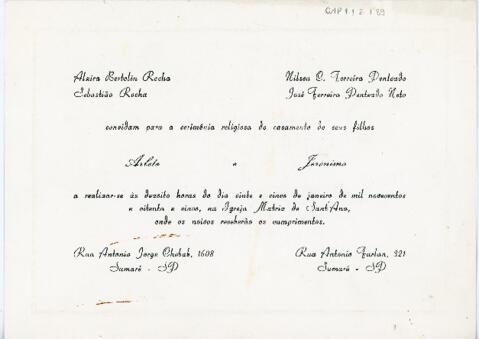 Alzira Bertolin Rocha
Sebastião Rocha
Nilsen O. Ferreira Penteado
José Ferreira Penteado Neto
convidam para a cerimônia religiosa do casamento de seus filhos
Arlete e Jeronimo
a realizar-se às dezoito horas do dia vinte e cinco de janeiro de mil novecentos
e oitenta e cinco, na Igreja Matriz de Sant'Ana,
onde os noivos receberão os cumprimentos.
Rua Antonio Jorge Chebab, 1608
Sumaré - SP
Rua Antonio Furlan, 321
Sumaré - SP